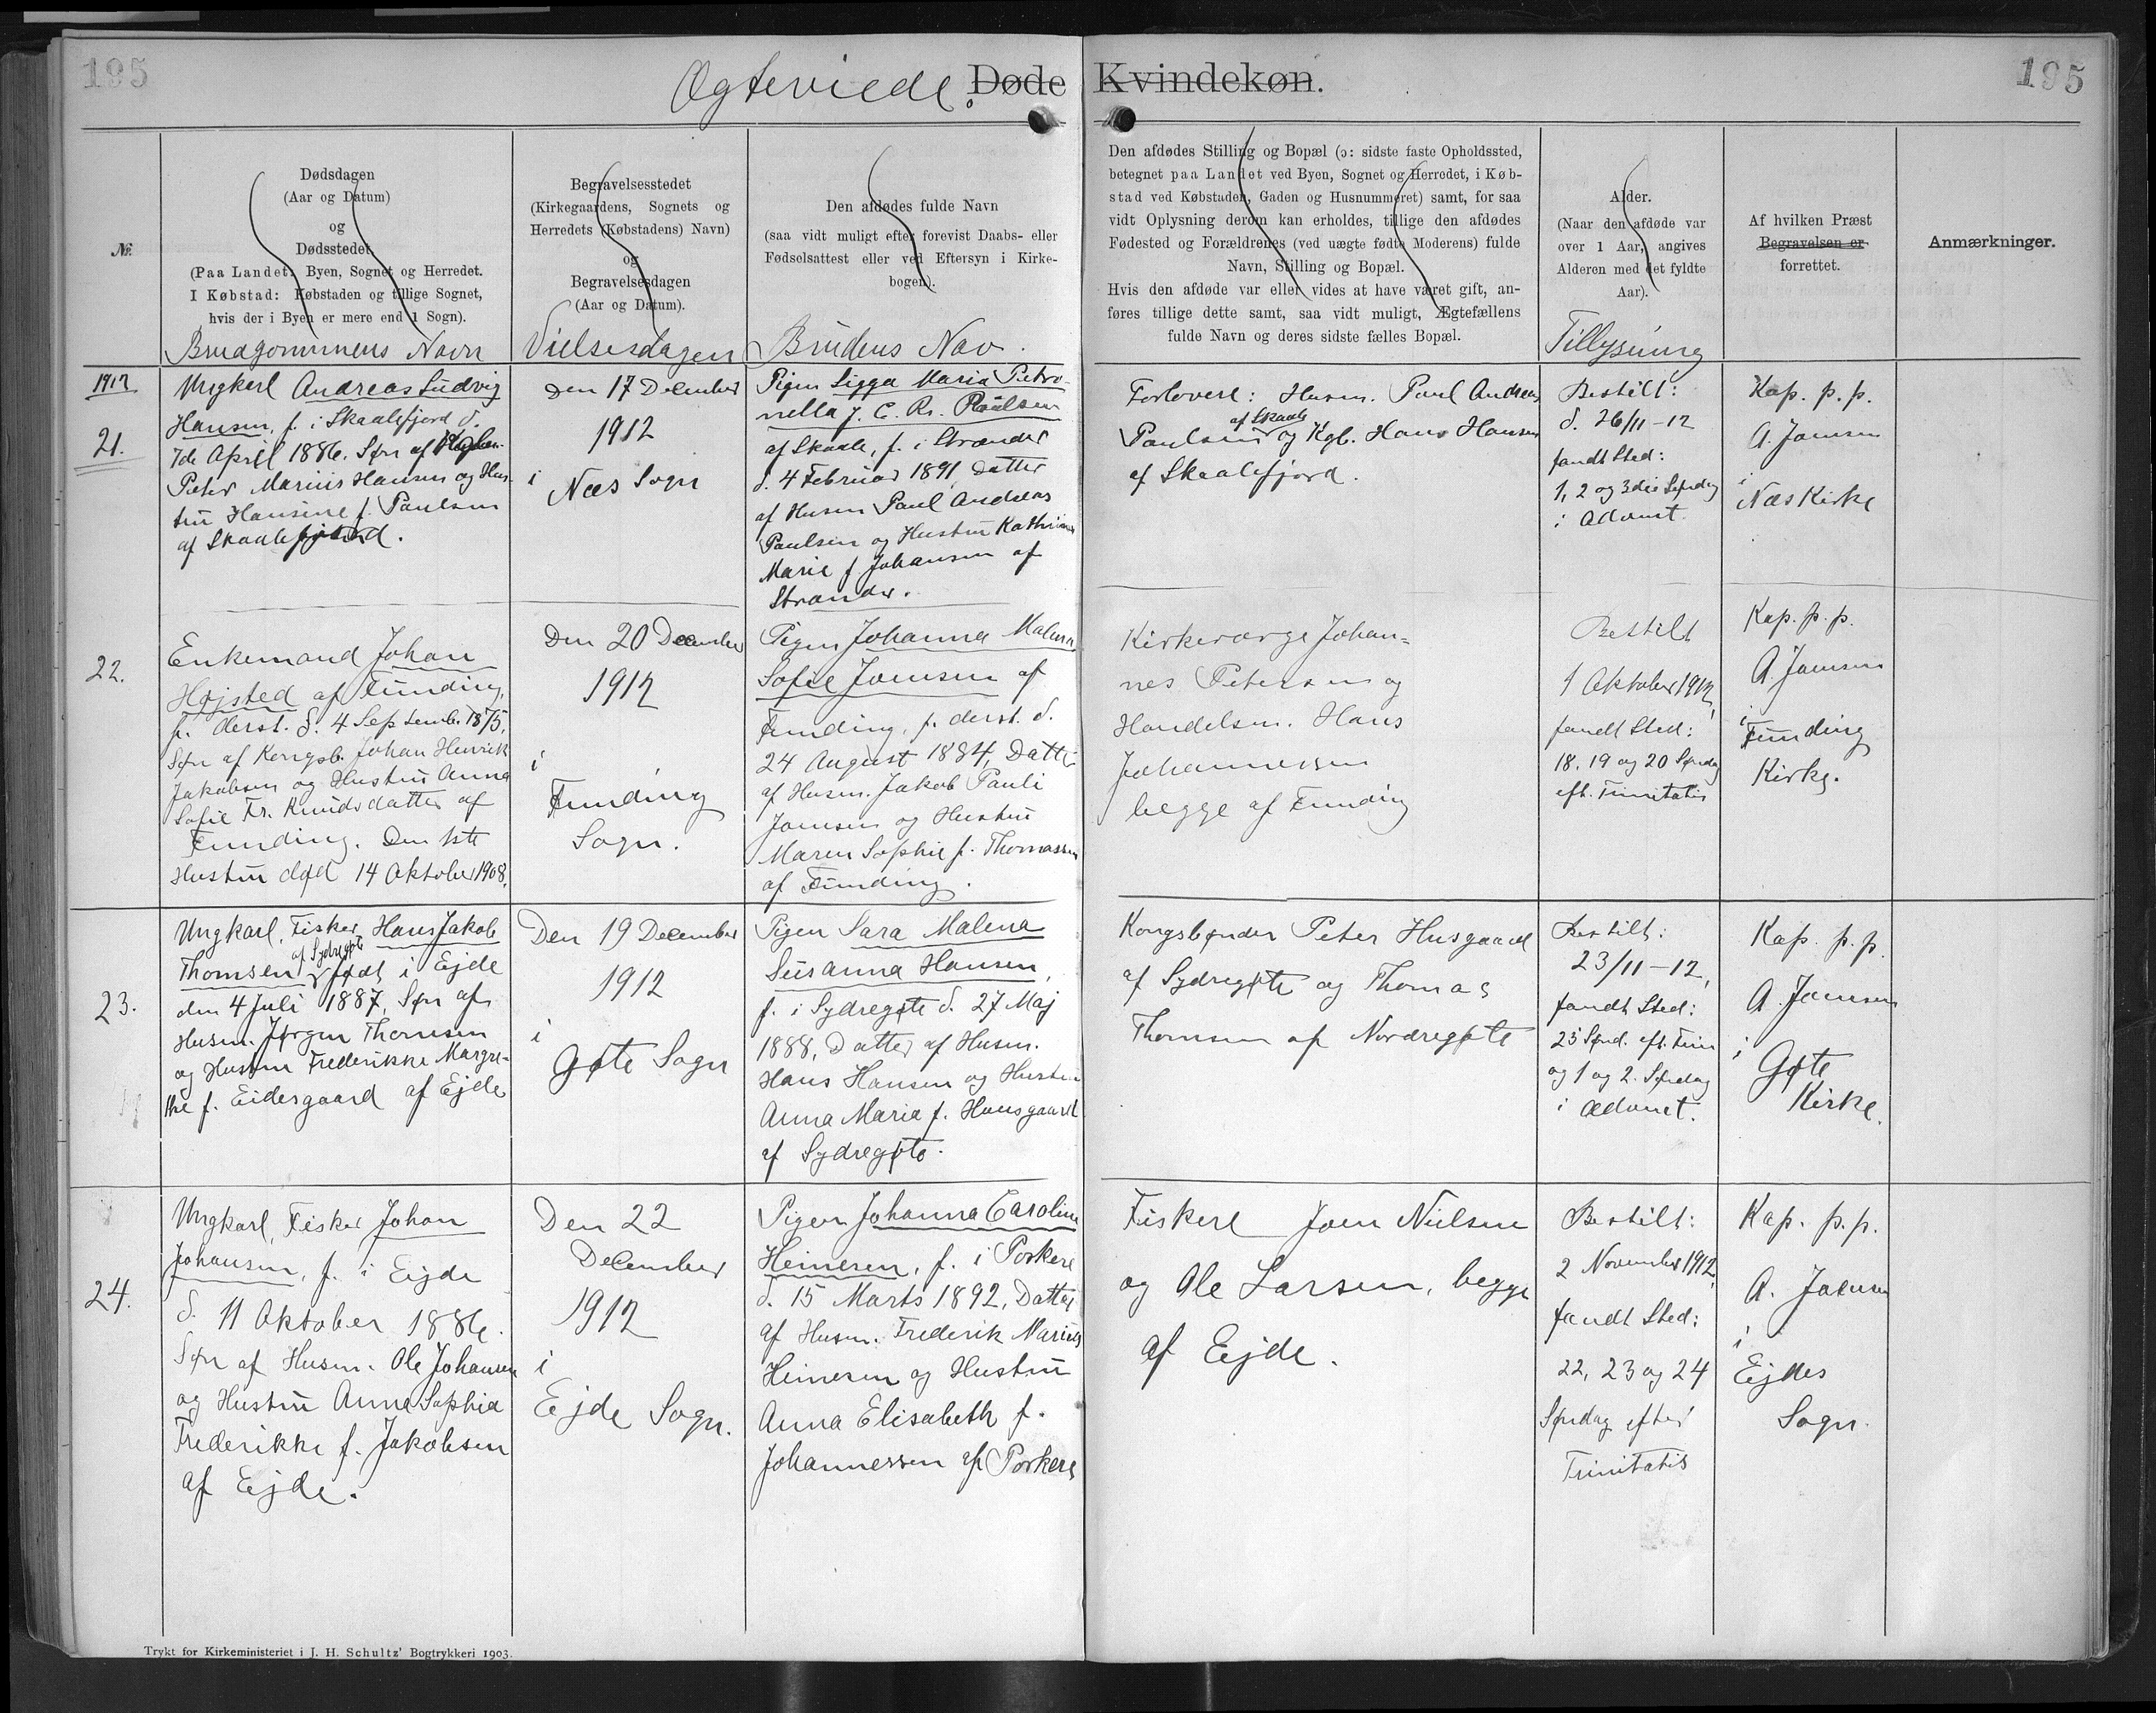 195
195
Ægteviede. Døde Kvindekøn.
№
Dødsdagen
(Aar og Datum)
og
Dødsstedet
(Paa Landet: Byen, Sognet og Herredet.
I Købstad: Købstaden og tillige Sognet,
hvis der i Byen er mere end 1 Sogn).
Brudgommens Navn
Begravelsesstedet
(Kirkegaardens, Sognets og
Herredets (Købstadens) Navn)
og
Begravelsesdagen
(Aar og Datum).
Vielsesdagen
Den afdødes fulde Navn
(saa vidt muligt efter forevist Daabs- eller
Fødselsattest eller ved Eftersyn i Kirke-
bogen).
Brudens Nav.
Den afdødes Stilling og Bopæl (ɔ: sidste faste Opholdssted,
betegnet paa Landet ved Byen, Sognet og Herredet, i Køb-
stad ved Købstaden, Gaden og Husnummeret) samt, for saa
vidt Oplysning derom kan erholdes, tillige den afdødes
Fødested og Forældrenes (ved uægte fødte Moderens) fulde
Navn, Stilling og Bopæl.
Hvis den afdøde var eller vides at have været gift, an-
føres tillige dette samt, saa vidt muligt, Ægtefællens
fulde Navn og deres sidste fælles Bopæl.
Alder.
(Naar den afdøde var
over 1 Aar, angives
Alderen med det fyldte
Aar).
Tillysning
Af hvilken Præst
Begravelsen er
forrettet.
Anmærkninger.
1912
21.
Ungkarl Andreas Ludvig
Hansen, f. i Skaalefjord d.
7de April 1886. Søn af
Peter Marius Hansen og Hus-
tru Hansine f. Paulsen
af Skaalefjord.
Den 17 December
1912
i
Næs Sogn
Pigen Sigga Maria Petro-
nella J. C. R. Paulsen
af Skaale, f. i Strænder
d. 4 Februar 1891, Datter
af Husm Paul Andreas
Paulsen og Hustru Kathrine
Marie f Johansen af
Strænder.
Forlovere: Husm. Paul Andreas
af Skaale
Paulsen og Kgb. Hans Hansen
af Skaalefjord.
Bestilt:
d. 26/11-12
fandt Sted:
1, 2 og 3die Søndag
i Advent.
Kap. p. p.
A. Joensen
i
Næs Kirke
22.
Enkemand Johan
Højsted af Funding,
f. derst. d. 4 Septemb. 1875,
Søn af Kongsb. Johan Henrik
Jakobsen og Hustru Anna
Sofie Fr. Knudsdatter af
Funding. Den 1ste
Hustru død 14 Oktober 1908.
Den 20 December
1912
i
Funding
Sogn.
Pigen Johanna Malena
Sofie Joensen af
Funding, f. derst. d.
24 August 1884, Datter
af Husm. Jakob Pauli
Joensen og Hustru
Maren Sophie f. Thomassen
af Funding.
Kirkeværge Johan-
nes Petersen og
Handelsm. Hans
Johannessen
begge af Funding
Bestilt
1 Oktober 1912,
fandt Sted:
18. 19 og 20 Søndag
eft. Trinitatis
Kap. p. p.
A. Joensen
i
Funding
Kirke.
23.
Ungkarl, Fisker, Hans Jakob
af Sydregøte
Thomsen, født i Ejde
den 4 Juli 1887, Søn af
Husm. Jørgen Thomsen
og Hustru Frederikke Margre-
the f. Eidesgaard af Ejde
Den 19 December
1912
i
Gøte Sogn
Pigen Sara Malena
Susanna Hansen,
f. i Sydregøte d. 27 Maj
1888, Datter af Husm.
Hans Hansen og Hustru
Anna Maria f. Hansgaard
af Sydregøte.
Kongsbonder Peter Husgaard
af Sydregøte og Thomas
Thomsen af Nordregøte
Bestilt:
23/11-12,
fandt Sted:
25 Sønd. eft. Trin
og 1 og 2. Søndag
i Advent.
Kap. p. p.
A. Joensen
i
Gøte
Kirke.
24.
Ungkarl, Fisker Johan
Johansen, f. i Ejde
d. 11 Oktober 1886.
Søn af Husm. Ole Johansen
og Hustru Anna Sophia
Frederikke f. Jakobsen
af Ejde.
Den 22
December
1912
i
Ejde Sogn.
Pigen Johanna Caroline
Heinesen, f. i Porkere
d. 15 Marts 1892, Datter
af Husm. Frederik Marius
Heinesen og Hustru
Anna Elisabeth f.
Johannessen af Porkere
Fiskere Joen Nielsen
og Ole Larsen, begge
af Ejde.
Bestilt:
2 November 1912,
fandt Sted:
22, 23 og 24
Søndag efter
Trinitatis
Kap. p. p.
A. Joensen
i
Ejdes
Sogn.
Trykt for Kirkeministeriet i J. H. Schultz' Bogtrykkeri 1903.